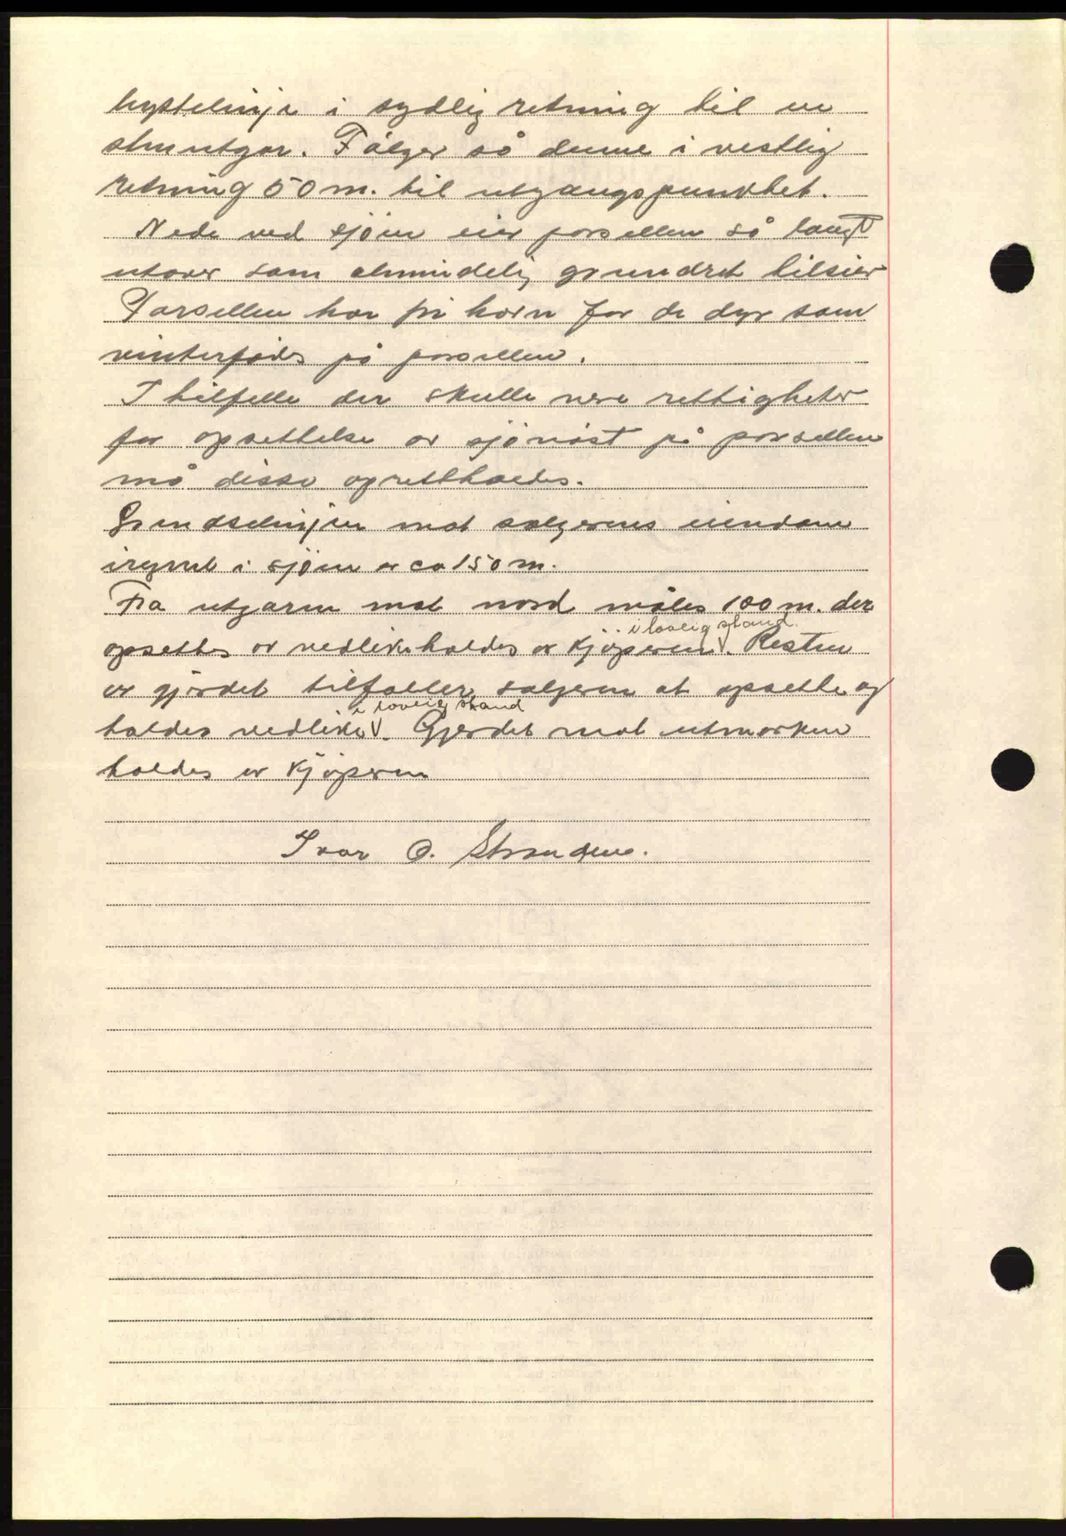 i sydlig retning til en
stenutgar. Følger så denne i vestlig
retning 50 m. til utgangspunktet.
Nede ved sjøen eier parsellen så langt
utover som almindelig grundret tilsier
Parsellen har fri havn for de dyr som
vinterfødes på parsellen.
I tilfelle der skulle være rettigheter
for opsettelse av sjønøst på parsellen
må disse oprettholdes.
mot selgerens eiendom
i sjøen er ca 150 m.
Fra utgaren mot nord måles 100 m. der
i lovlig stand
opsettes og vedlikeholdes av kjøperen V. Resten
av gjerdet tilfaller selgeren at opsette og
i lovlig stand
holdes vedlike V. Gjerdet mot utmarken
holdes av kjøperen
Ivar O. Stranden.